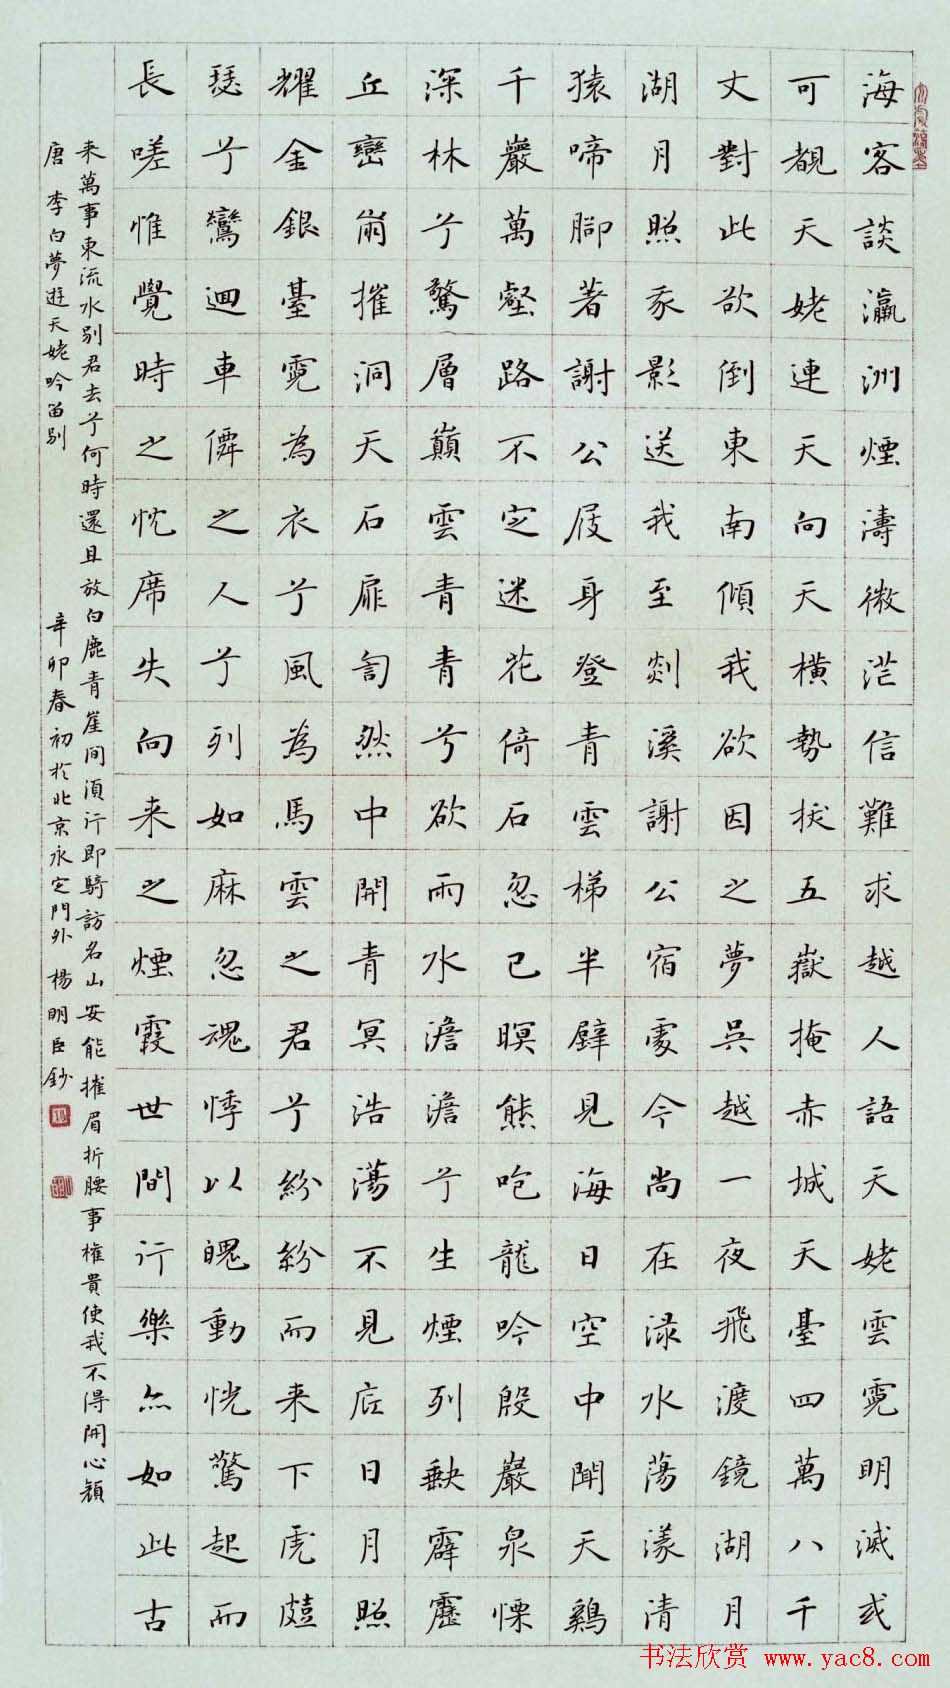 海客談瀛洲煙濤微茫信難求越人語天姥雲霓明滅或
可覩天姥連天向天橫勢拔五嶽掩赤城天臺四萬八千
丈對此欲倒東南傾我欲因之夢吳越一夜飛渡鏡湖月
湖月照我影送我至剡溪謝公宿處今尚在淥水蕩漾清
猿啼腳著謝公屐身登青雲梯半壁見海日空中聞天鷄
千巖萬壑路不定迷花倚石忽已暝熊咆龍吟殷巖泉慄
深林兮驚層巔雲青青兮欲雨水澹澹兮生煙列缺霹靂
丘巒崩摧洞天石扉訇然中開青冥浩蕩不見底日月照
耀金銀臺霓為衣兮風為馬雲之君兮紛紛而来下虎鼓
瑟兮鸞迴車僊之人兮列如麻忽魂悸以魄動恍驚起而
長嗟惟覺時之枕席失向来之煙霞世間行樂亦如此古
来萬事東流水別君去兮何時還且放白鹿青崖間須行即騎訪名山安能摧眉折腰事權貴使我不得開心顏
唐 李白夢遊天姥吟留別 辛卯春初於北京永定門外 楊明臣鈔
书法欣赏 www.yac8.com